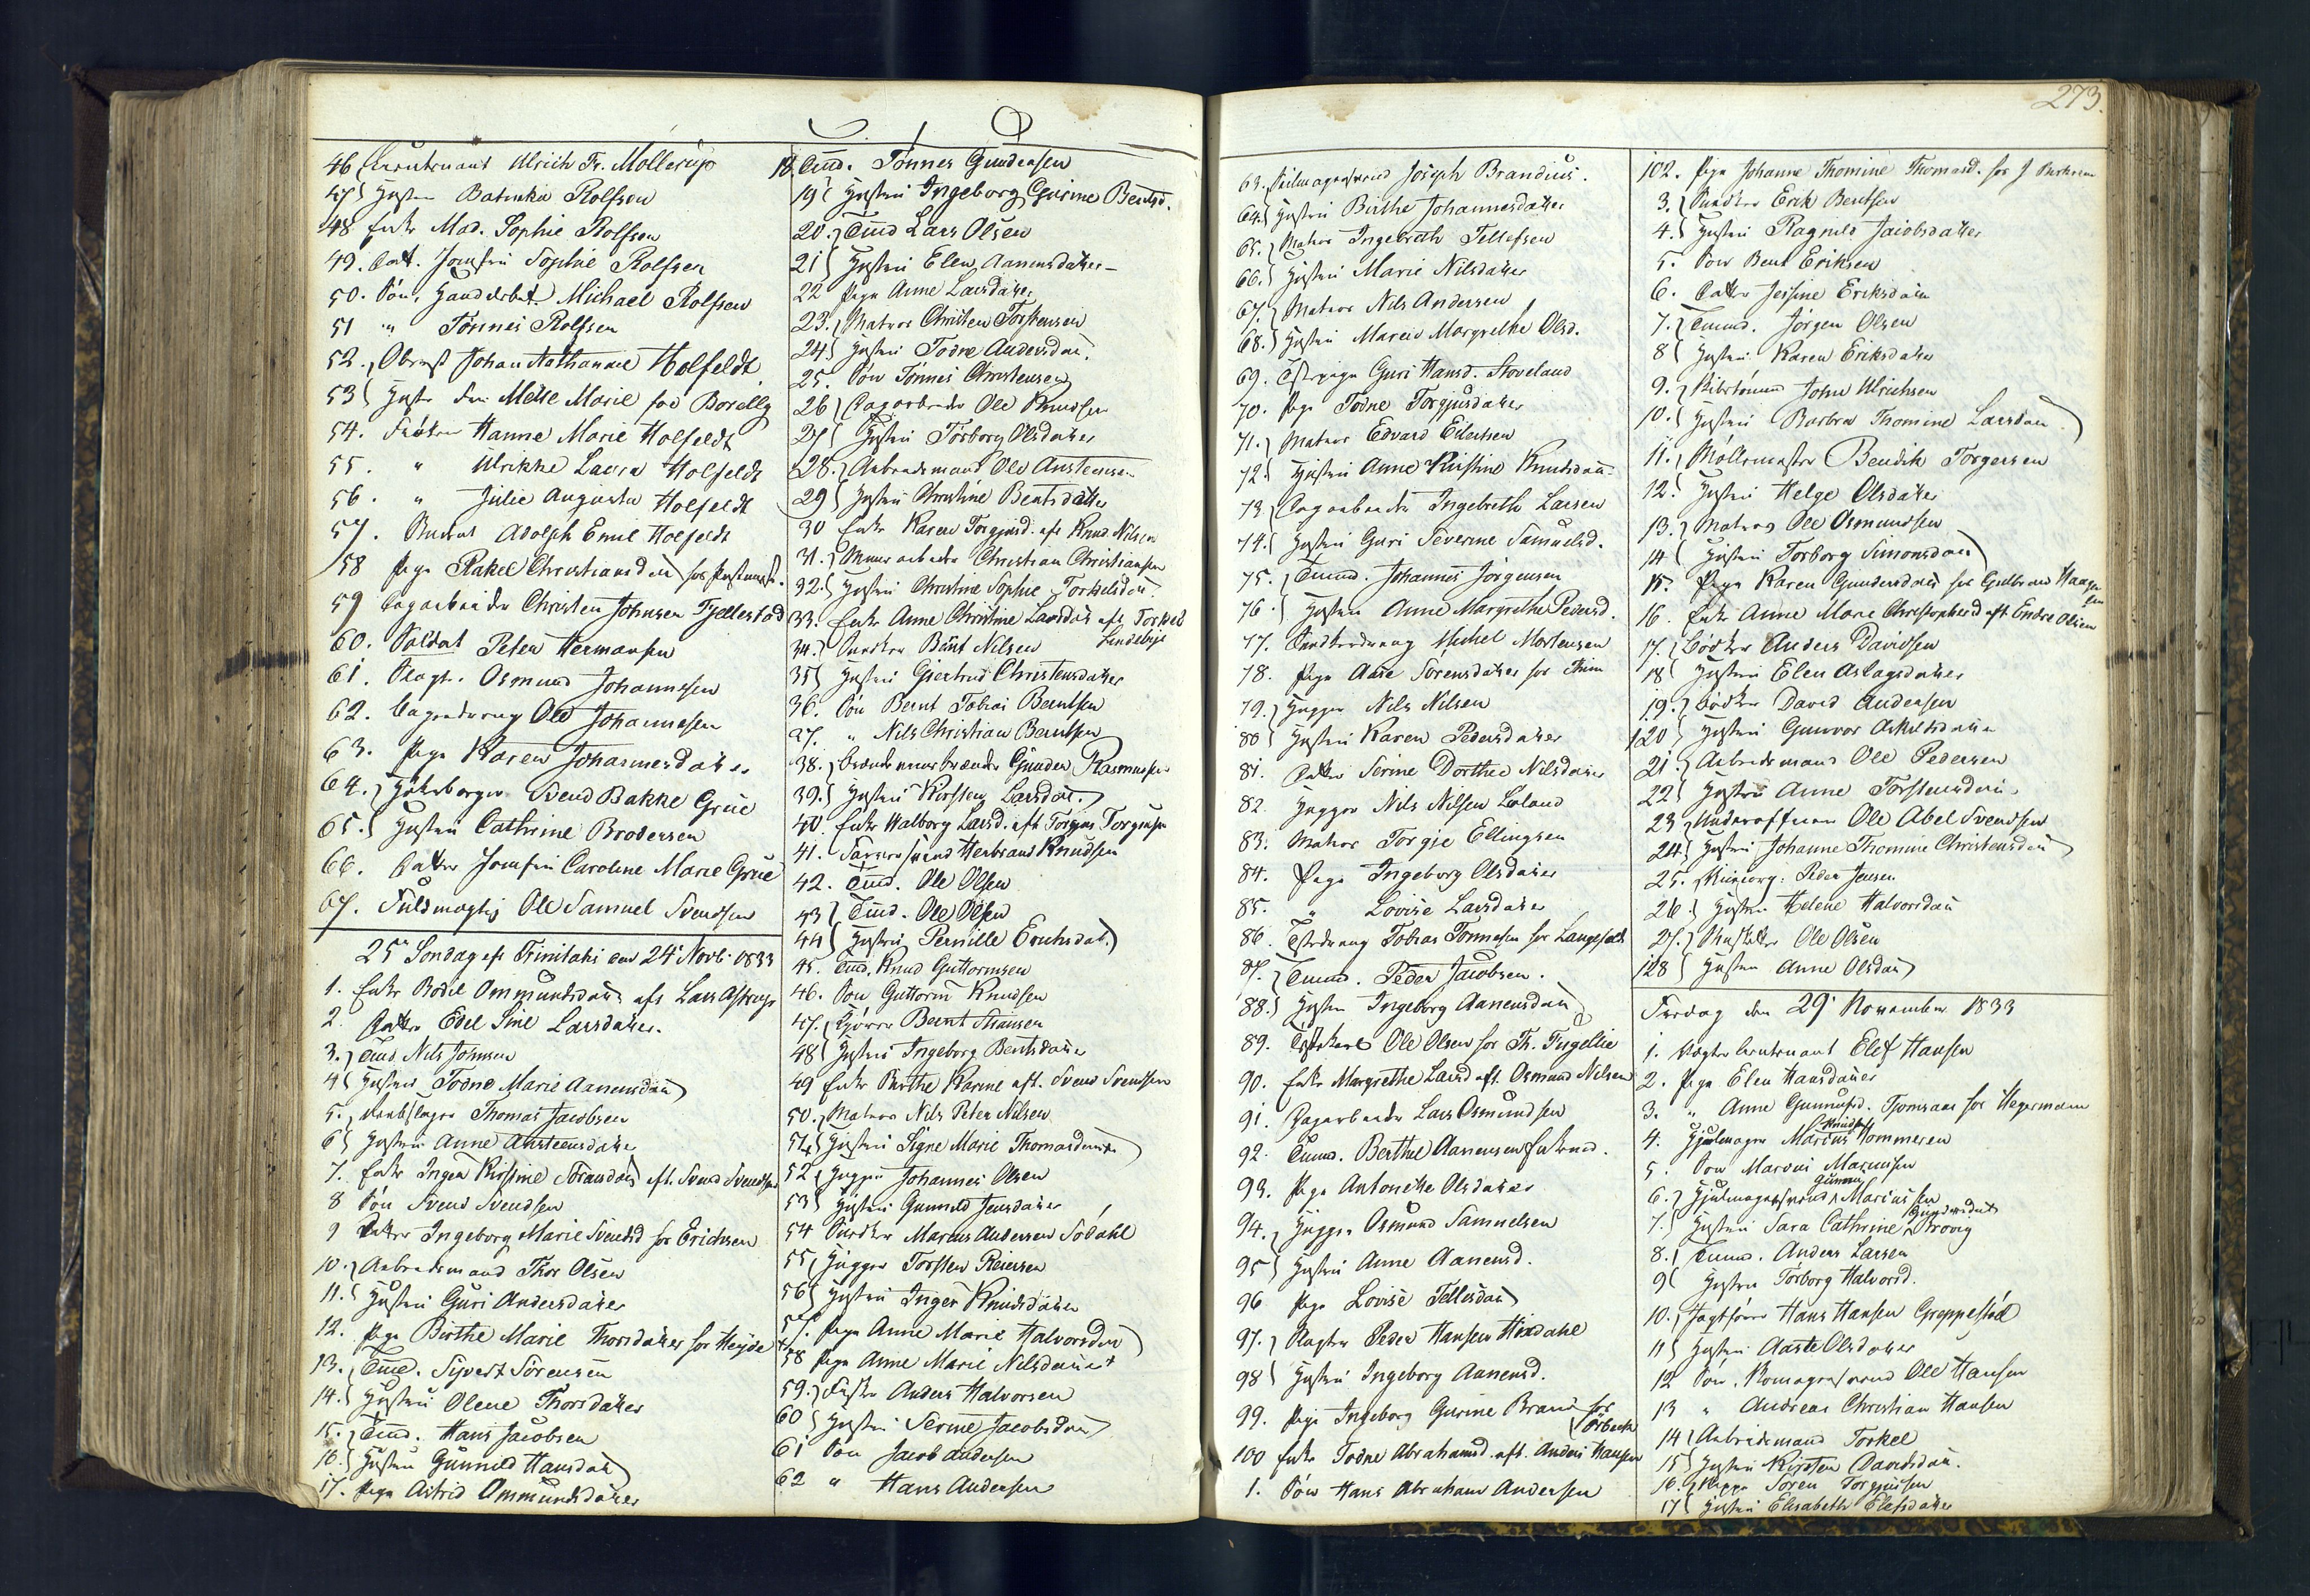 46 Lieutenant Ulrich Fr. Mollerup
47 Hustru Batseba Rolfsen
48 Enke Mad. Sophie Rolfsen
49. Datt. Jomfru Sophie Rolfsen
50. Søn, Handelsbet. Michael Rolfsen
51 " Tønnes Rolfsen
52. Oberst Johan Nathanael Holfeldt
53 Hustr Fru Mette Marie fød Borelly
54. Frøken Hanne Marie Holfeldt
55. " Ulrikke Laura Holfeldt
56. " Julie Augusta Holfeldt
57. Student Adolph Emil Holfeldt
58 Pige Rakel Christiansdatt for
59 Dagarbeider Christen Johnsen Tjellestad
60. Soldat Peter Hermansen
61. Slagt. Osmund Johannesen
62. Ole Johannesen
63. Pige Karen Johannesdatter
64. Svend Bakke Grue
65. Hustru Cathrine Brodersen
66. Datter Jomfru Caroline Marie Grue
67. Fuldmægtig Ole Samuel Svendsen
25de Søndag eft Trinitatis den 24de Novb. 1833
1. Enke Bodil Ommundsdatt eft Lars
2. Datter Edel Sine Larsdatter.
3. Tmd. Nils Johnsen
4 Hustru Todne Marie Aanensdatt
5. Rebslager Thomas Jacobsen
6 Hustru Anne Austensdatter
7. Enke Inger Kirstine eft. Svend Svendsen
8 Søn Svend Svendsen
9 Datter Ingeborg Marie Svendsd for Erichsen
10. Arbeidsmand Thor Olsen
11. Hustru Guri Andersdatter
12. Pige Birthe Marie Thorsdatter for Heyde
13. Tmd. Syvert Sørensen
14. Hustru Olene Thorsdatter
15. Tmd. Hans Jacobsen
16. Hustru Gunnild Hansdatt
17. Pige Astrid Ommundsdatter
18. Tmd. Tønnes Gundersen
19 Hustru Ingeborg Gurine Bentsd.
20. Tmd Lars Olsen
21 Hustru Elen Aanensdatter
22 Pige Anne Larsdatter
23. Matros Christen Torstensen
24. Hustru Todne Andersdatt.
25. Søn Tønnes Christensen
26 Dagarbeider Ole Knudsen
27 Hustru Torborg Olsdatter
28. Arbeidsmand Ole Austensen
29 Hustru Christine Bentsdatter
30 Enke Karen Torgjusd. eft Knud Nilsen
31. Christian Christiansen
32. Hustru Christine Sophie Torkelsdatt.
33. Enke Anne Christine Larsdatt eft Torkel
34. Snedker Bent Nilsen
35 Hustru Giertrud Christensdatter
36. Søn Bernt Tobias Berntsen
37. " Nils Christian Berntsen
38. Brændeviinsbrænder Gunder Rasmussen
39. Hustru Kirsten Larsdatt.
40. Enke Walborg Larsd. eft Torgius Torgiusen
41. Herbrand Knudsen
42. Tmd. Ole Olsen
43 Tmd. Ole Olsen
44 Hustru Pernille Erichsdat.
45. Tmd. Knud Guttormsen
46. Søn Guttorm Knudsen
47. Bernt Hansen
48 Hustru Ingeborg Bentsdatter
49 Enke Birthe Karine eft. Svend Svendsen
50. Matros Nils Peter Nilsen
51 Hustru Signe Marie Thomasdatter
52 Hugger Johannes Olsen
53 Hustru Gunnild Jensdatter
54 Snedker Marcus Andersen Sødahl
55 Hugger Torsten Reiersen
56 Hustru Inger Knudsdatter
57. Pige Anne Marie Halvorsdatt
58 Pige Anne Marie Nilsdatter
59. Fisker Anders Halvorsen
60 Hustru Serine Jacobsdatt
61 Søn Jacob Andersen
62 " Hans Andersen
273.
63. Seilmagersvend Joseph Brandius.
64. Hustru Birthe Johannesdatter
65. Matros Ingebreth Tellefsen
66. Hustru Marie Nilsdatter
67. Matros Nils Andersen
68. Hustru Maren Margrethe Olsd.
69. Tstepige Guri Hansd. Stoveland
70. Pige Todne Torgjusdatter
71. Matros Edvard Eilertsen
72. Hustru Anne Kirstine Knudsdatt.
73 Dagarbeider Ingebreth Larsen
74. Hustru Guri Severine Samuelsd.
75. Tmd. Johannes Jørgensen
76. Hustru Anne Margrethe Pedersd.
77. Michel Mortensen
78. Pige Aase Sørensdatter for
79. Hugger Nils Nilsen
80 Hustru Karen Pedersdatter
81. Datter Serine Dorthea Nilsdatter
82 Hugger Nils Nilsen Loland
83. Matros Torgie Ellingsen
84. Pige Ingeborg Olsdatter
85. " Lovise Larsdatter
86. Tstedreng Tobias Tønnesen for Langfeldt
87. Tmd. Peder Jacobsen.
88. Hustru Ingeborg Aanensdatt
89. Tstekarl Ole Olsen for Th.
90. Enke Margrethe Larsd eft. Osmund Nilsen
91. Dagarbeider Lars Osmundsen
92. Tmd. Berthel Aanensen Enkemd.
93. Pige Antonette Olsdatter
94. Hugger Osmund Samuelsen
95 Hustru Anne Aanensd.
96 Pige Lovise Tellisdatt
97. Slagter Peder Hansen Hixdahl
98 Hustru Ingeborg Aanensd.
99. Pige Ingeborg Gurine Brand for Ørbech
100 Enke Todne Abrahamsd. eft. Anders Hansen
1. Søn Hans Abraham Andersen
102. Pige Johanne Thomine Thomasd. for J
3. Snedker Erik Bentsen
4. Hustru Ragnild Jacobsdatter
5. Søn Bent Eriksen
6. Datter Jessine Eriksdatter
7. Tmd. Jørgen Olsen
8 Hustru Karen Eriksdatter
9. John Ulrichsen
10. Hustru Barbra Thomine Larsdatt
11. Møllemester Bendik Torgersen
12. Hustru Helge Olsdatter
13. Matros Ole Osmundsen
14 Hustru Torborg Simonsdatt
15. Pige Karen Gundersdatt for Gulbrand Haagensen
16. Enke Anne Marie Christophersd eft Endre Olsen
17. Bødker Anders Davidsen
18 Hustru Elen Aslagsdatter
19. Bødker David Andersen
120 Hustru Gunvor
21. Arbeidsmand Ole Pedersen
22 Hustru Anne Torstensdatt.
23 Underofficeer Ole Abel Svendsen
24. Hustru Johanne Thomine Christensdatt
25. Peder Jensen
26. Hustru Helene Halvorsdatt
27. Ole Olsen
128 Hustru Anne Olsdatt
Fredag den 29de November 1833
1. Vægterlieutenant Elef Hansen
2. Pige Elen Hansdatter
3. " Anne Gunnufsd. Tjomsaas for Hegermann
4. Hjulmager Marcus Knudsen Hommeren
5. Søn Marcus Marcussen
6. Hjulmagersvend Gunder Marcussen
7. Hustru Sara Cathrine Gundersdatt Brovig
8. Tmd. Anders Larsen
9 Hustru Torborg Halvorsd.
10. Jagtfører Hans Hansen Greppestøl
11 Hustru Aaste Olsdatter
12 Søn, Skomagersvend Ole Hansen
13 " Andreas Christian Hansen
14 Arbeidsmand Torkel
15 Hustru Kirsten Davidsdatt.
16. Søren Torgjussen
17 Hustru Elisabeth Elefsdatter